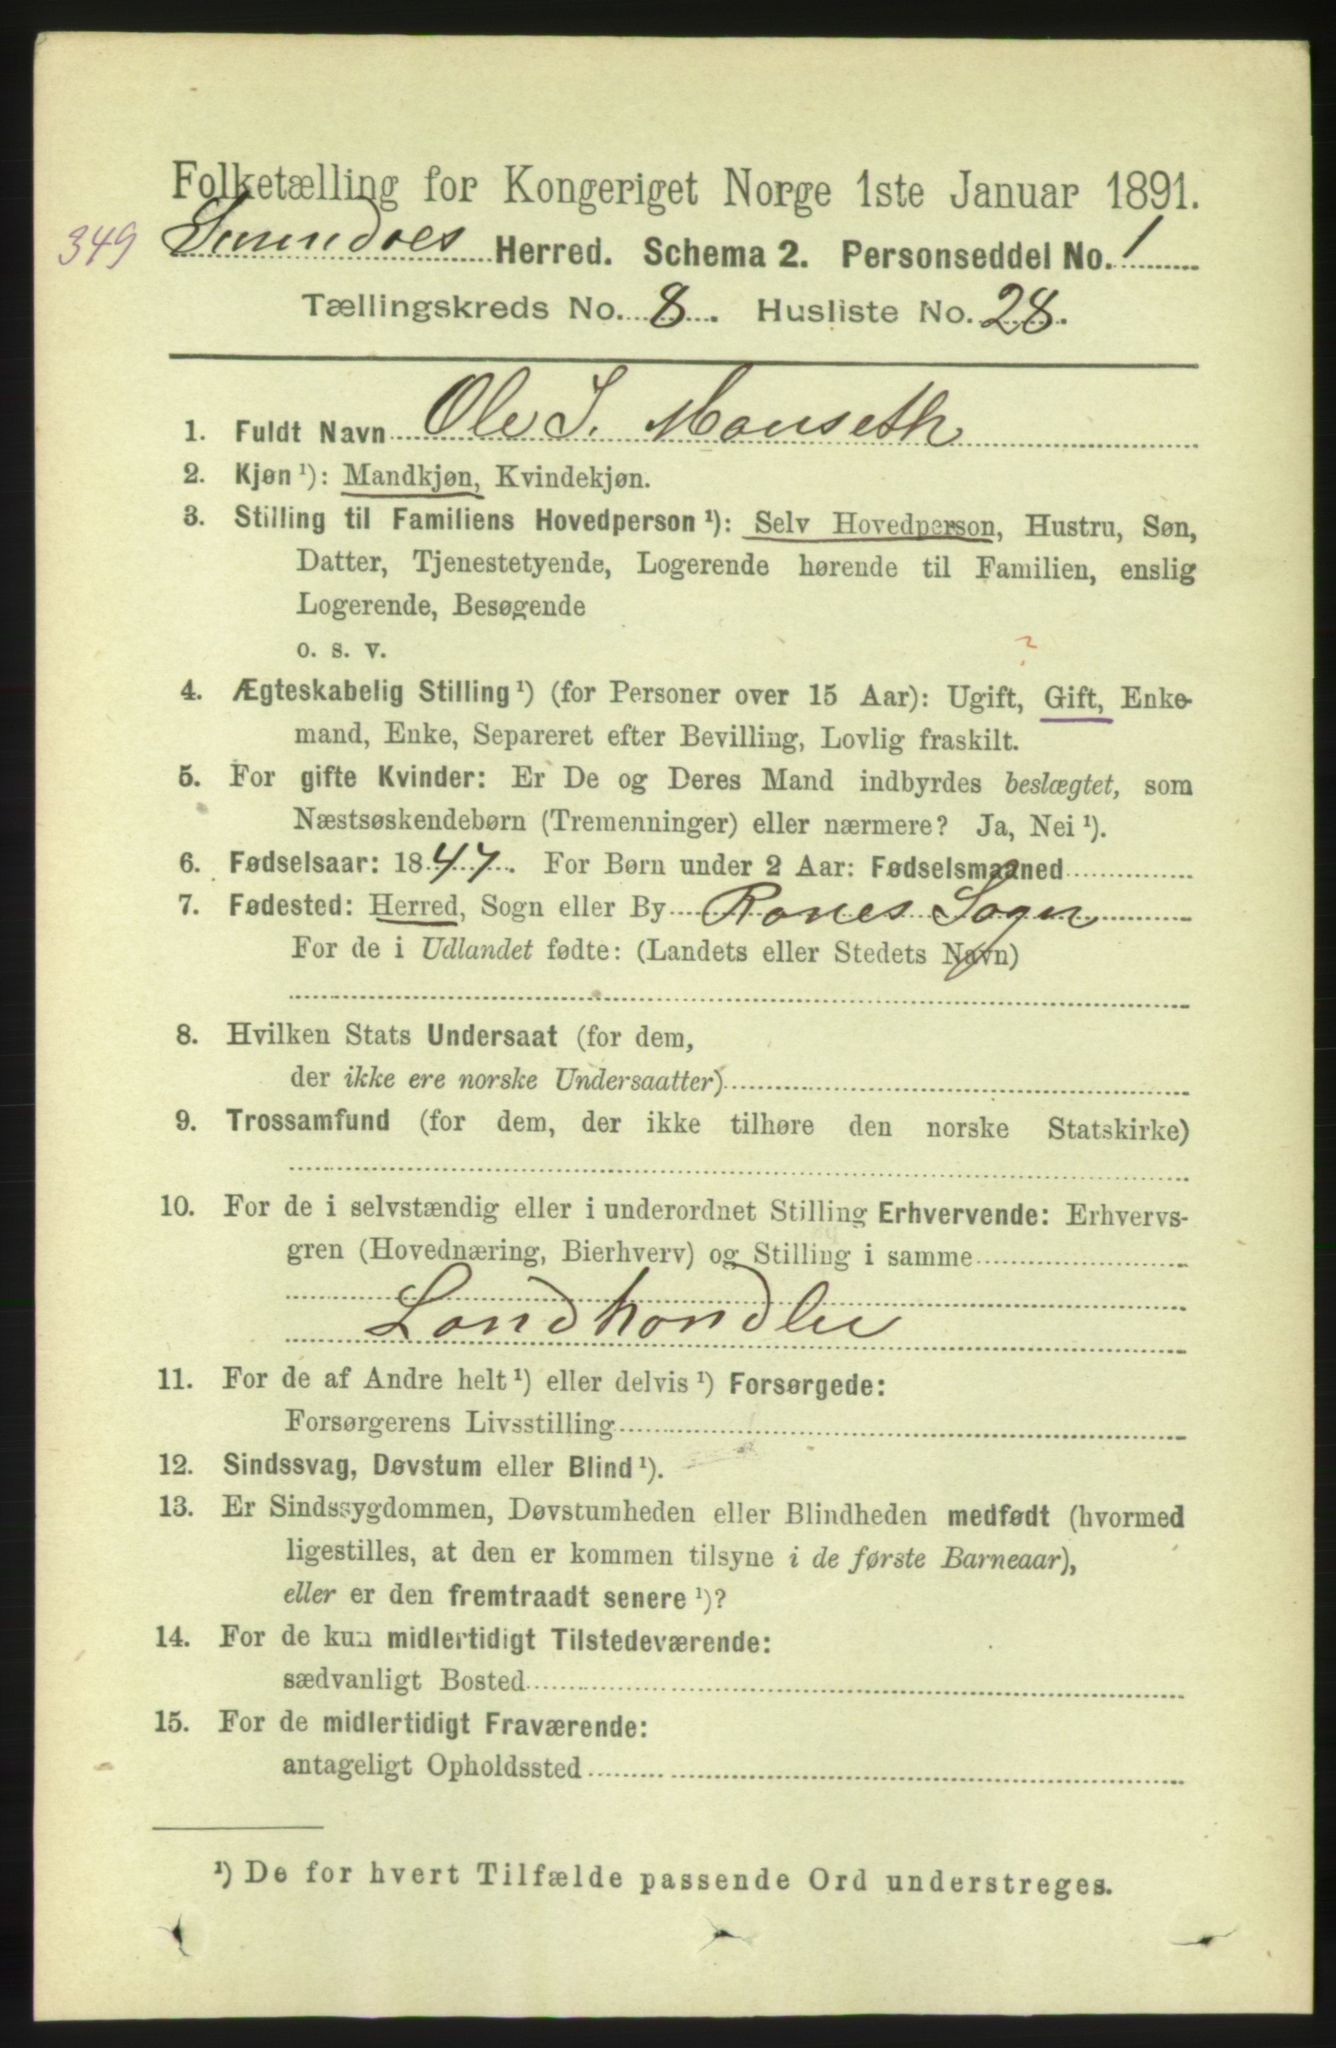 Folketælling for Kongeriget Norge 1ste Januar 1891.
349 Sunndals Herred. Schema 2. Personseddel No. 1
Tællingskreds No. 8. Husliste No. 28.
1. Fuldt Navn Ole S. Mauseth
2. Kjøn ¹): Mandkjøn, Kvindekjøn.
3. Stilling til Familiens Hovedperson ¹): Selv Hovedperson, Hustru, Søn,
Datter, Tjenestetyende, Logerende hørende til Familien, enslig
Logerende, Besøgende
o. s. v.
?
4. Ægteskabelig Stilling ¹) (for Personer over 15 Aar): Ugift, Gift, Enke-
mand, Enke, Separeret efter Bevilling, Lovlig fraskilt.
5. For gifte Kvinder: Er De og Deres Mand indbyrdes beslægtet, som
Næstsøskendebørn (Tremenninger) eller nærmere? Ja, Nei ¹).
6. Fødselsaar: 1847. For Børn under 2 Aar: Fødselsmaaned
7. Fødested: Herred, Sogn eller By Ranes Sogn
For de i Udlandet fødte: (Landets eller Stedets Navn)
8. Hvilken Stats Undersaat (for dem,
der ikke ere norske Undersaatter)
9. Trossamfund (for dem, der ikke tilhøre den norske Statskirke)
10. For de i selvstændig eller i underordnet Stilling Erhvervende: Erhvervs-
gren (Hovednæring, Bierhverv) og Stilling i samme
Landhandler
11. For de af Andre helt ¹) eller delvis ¹) Forsørgede:
Forsørgerens Livsstilling
12. Sindssvag, Døvstum eller Blind ¹).
13. Er Sindssygdommen, Døvstumheden eller Blindheden medfødt (hvormed
ligestilles, at den er kommen tilsyne i de første Barneaar),
eller er den fremtraadt senere ¹)?
14. For de kun midlertidigt Tilstedeværende:
sædvanligt Bosted
15. For de midlertidigt Fraværende:
antageligt Opholdssted
¹) De for hvert Tilfælde passende Ord understreges.